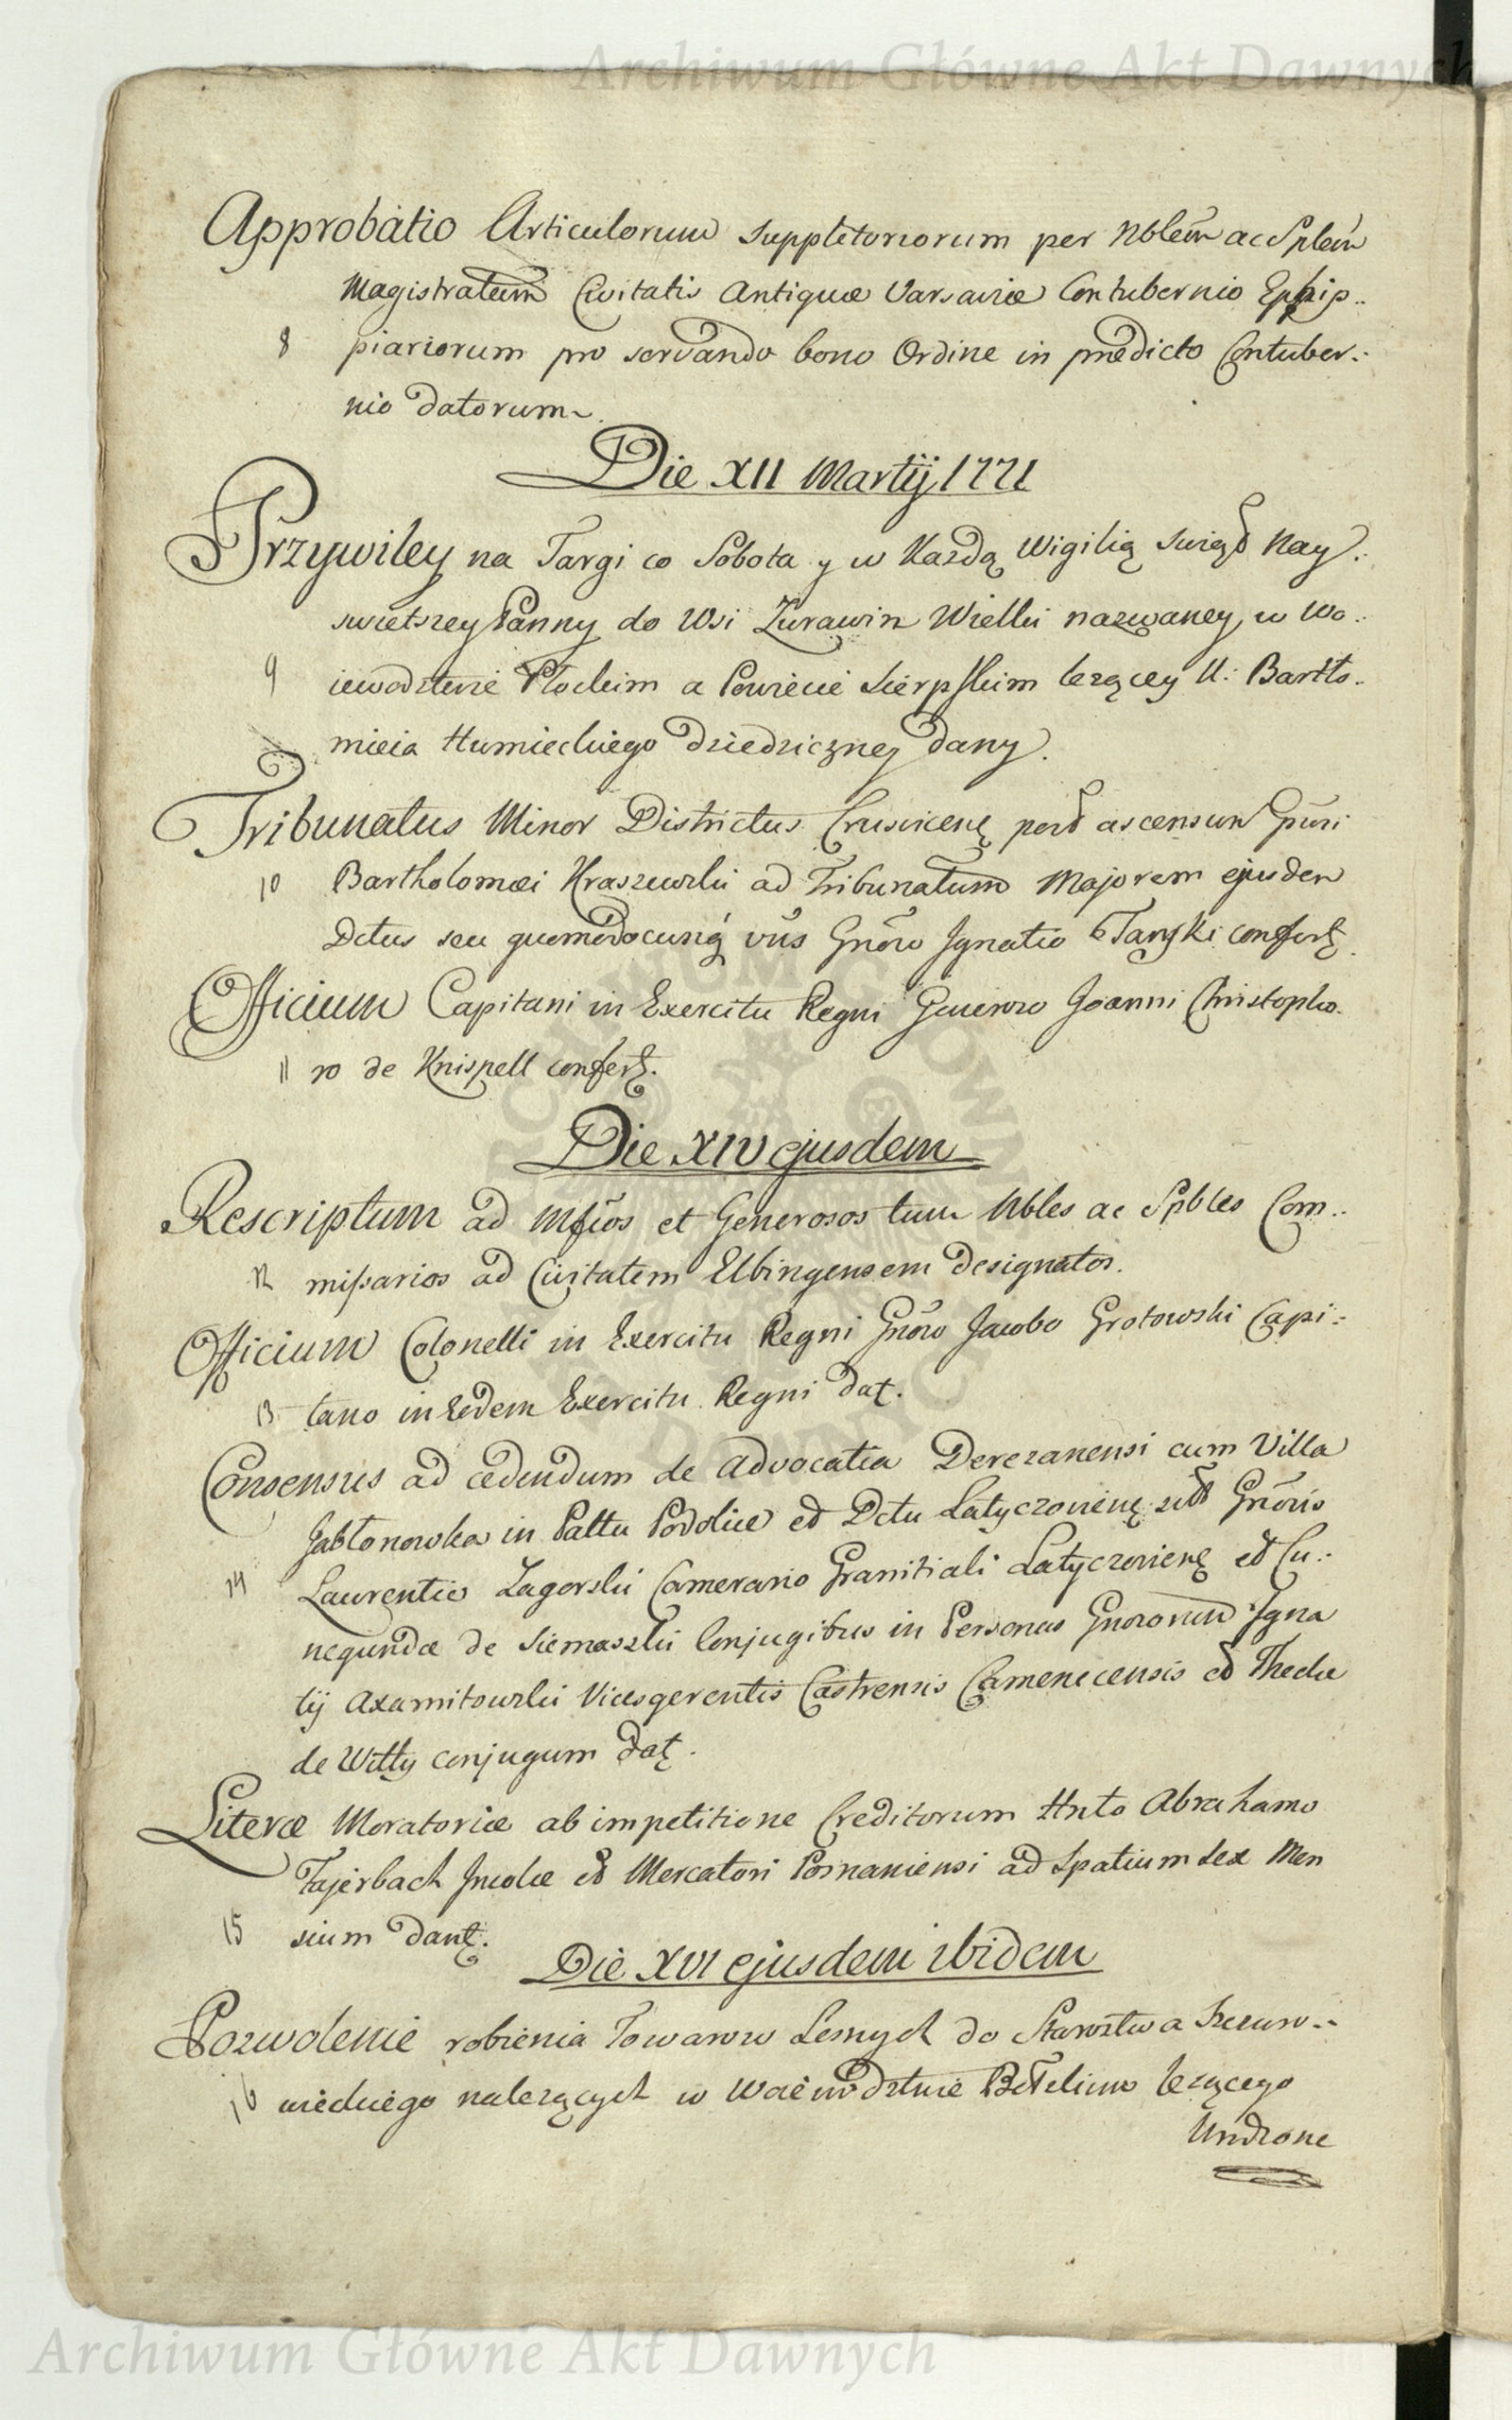 Archiwum Główne Akt Dawnych
Approbatio Articulorum suppletoriorum per Nblem ac Splem
Magistratum Civitatis Antiquæ Varsaviæ Contubernio Ephip..
8 piariorum pro servando bono Ordine in prædicto Contuber.:
nio datorum.
Die XII Martij 1771
Przywiley na Targi co Sobota y w Każdą Wigilią Swiąt Nay.:
swietszey Panny do Wsi Zurawin Wielki nazwaney, w Wo..
9 iewodztwie Płockim a Powiecie Sierpskim leżącey U: Bartło..
mieia Humieckiego dziedziczney dany.
Tribunatus Minor Districtus Crusvicen post ascensum Gnusi
10 Bartholomæi Kraszewski ad Tribunatum Majorem ejusdem
Dctus seu quomodocunq vus Gnoso Ignatio Tański confert.
Officium Capitani in Exercitu Regni Generoso Joanni Christopho.
11 ro de Knispell confert.
Die XIV ejusdem
Rescriptum ad Mficos et Generosos tum Nbles ac Spbles Com..
12 missarios ad Civitatem Elbingensem designatos.
Officium Colonelli in Exercitu Regni Gnoso Jacobo Grotowski Capi.:
13 tano in Eodem Exercitu Regni dat.
Consensus ad cedendum de Advocatia Derezanensi cum Villa
Jabłonowka in Pallu Podoliæ et Dctu Latyczovien sitis Gnosis
14 Laurentio Zagorski Camerario Granitiali Latyczovien et Cu.:
negundæ de Siemaszki Conjugibus in Personas Gnosorum Igna
tij Axamitowski Vicesgerentis Castrensis Camenecensis et Theclæ
de Witty conjugum dat.
Literæ Moratoriæ ab impetitione Creditorum Hnto Abrahamo
Fajerbach Incolæ et Mercatori Posnaniensi ad spatium sex Men
15 sium dant.
Die XVI ejusdem ibidem
Pozwolenie robienia Towarow Lesnych do Starostwa
16 nalezących w Woiewodztwie Bełskim leżącego
Archiwum Główne Akt Dawnych